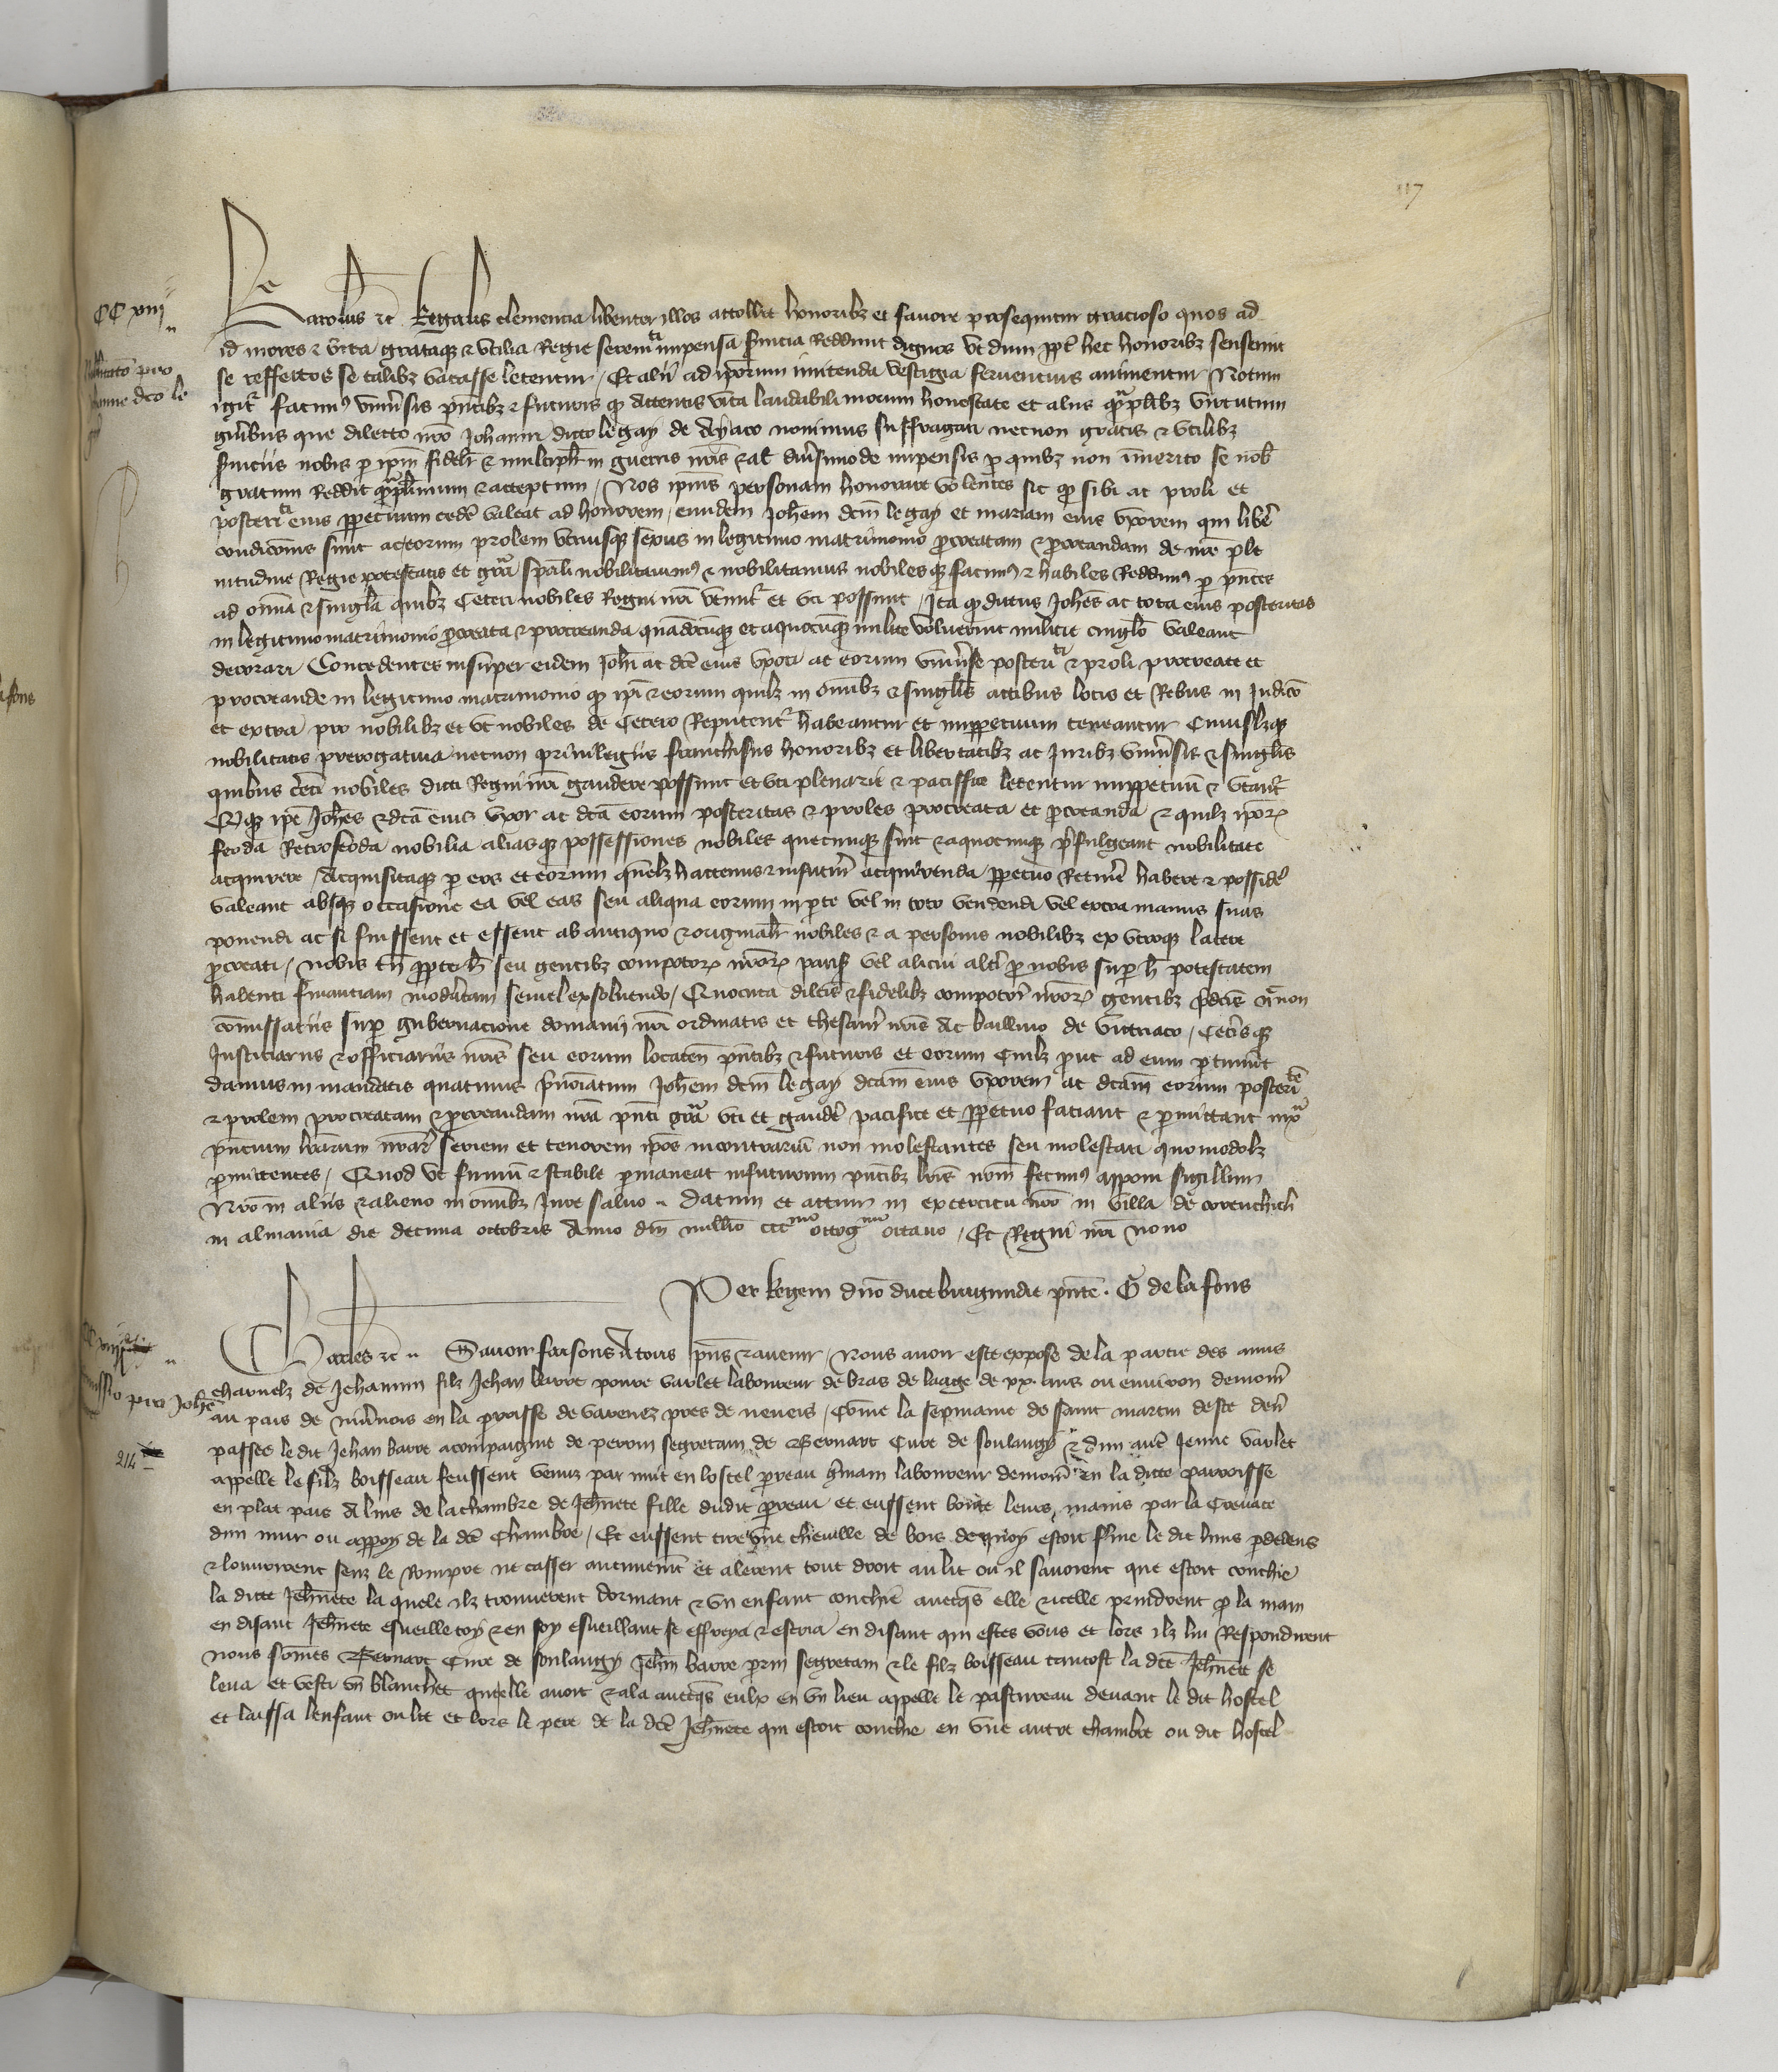 117
CC xiii
Karolus etc Regalis clemencia libenter illos attollit honoribz et favore prosequitur gracioso quos ad
id mores & vita grataqz & utilia Regie serenitati impensa servicia Reddunt dignos ut dum ppt hec honoribz senserint
se reffertos se talibz vacasse letentur / Et alii ad ipsorum imitenda vestigia ferventius animentur Notum
igitr facimus universis pntibz & futuris qd Attentis vita laudabili morum honestate et aliis qmplibz virtutum
gribus que dilecto nro Johanni dicto le gay de novimus suffragari necnon gratis & utilibz
serviciis nobis p ipm fidelr & multiplr in guerris nris & alr diversimode impensis p quibz non immerito se nob
gratum Reddit qmplimum & acceptum / Nos ipius personam honorare volentes sic qd sibi ac proli et
posteritati eius perpetuum cedere valeat ad honorem / eundem Johem dcm le gay et mariam eius uxorem qui libere
condicois sunt ac eorum prolem utriusqz sexus in legitimo matrimonio procreatam & procreandam de nre ple
nitudine Regie potestatis et gra spali nobilitavimus & nobilitamus nobilesqz facimus & habiles Reddimus p pntes
ad omnia & singla quibz ceteri nobiles Regni nri utuntr et uti possunt / Ita qd dictus Johes ac tota eius posteritas
in legitimo matrimonio procreata & procreanda quandocunqz et a quocunqz milite voluerint milicie cinglo valeant
decorari Concedentes insuper eidem Johi ac dce eius uxori ac eorum universe posteritati & proli procreate et
procreande in legitimo matrimonio qd ipi & eorum quilz in omnibz & singlis actibus locis et Rebus in Judicio
et extra pro nobilibz et ut nobiles de cetero Reputentr habeantur et imperpetuum teneantur Cuiuslzqz
nobilitatis prerogativa necnon privilegiis franchisiis honoribz et libertatibz ac Juribz universis & singlis
quibus ceteri nobiles dicti Regni nri gaudere possunt et uti plenarie & paciffice letentur imperpetuu & utantr
Qdqz ipe Johes & dca eius uxor ac dca eorum posteritas & proles procreata et procreanda & quilz ipor
feoda Retrofeoda nobilia aliasqz possessiones nobiles quecunqz sint & a quocunqz prefulgeant nobilitate
acquirere / Acquisitaqz p eos et eorum quelz hactenus & infuturum acquirenda perpetuo Retinere habere & possidere
valeant absqz occasione ea vel eas seu aliqua eorum in parte vel in toto vendendi vel extra manus suas
ponendi ac si fuissent et essent ab antiquo & originalr nobiles & a personis nobilibz ex utroqz latere
procreati / nobis tn propter h seu gentibz compotor nror paris vel alicui alteri pro nobis super h potestatem
habenti financiam moderatam semel exsolvendo / Quocirca dilcis & fidelibz compotor nror gentibz predcis necnon
comissariis super gubernacione domanii nri ordinatis et thesaur nris Ac baillivo de vitriaco / Ceterisqz
Justiciariis & officiariis nris seu eorum locaten pntibz & futuris et eorum cuilz prout ad eum ptinuit
damus in mandatis quatinus prenoiatum Johem dcm le gay dcam eius uxorem ac dcam eorum posteritatem
& prolem procreatam & procreandam nra pnti gra uti et gaudere pacifice et perpetuo faciant & pmittant iuxta
pntium lrarum nrar seriem et tenorem ipos in contrariu non molestantes seu molestari quomodolz
pmittentes / Quod ut firmu & stabile pmaneat infuturum pntibz lris nrm fecimus apponi sigillum
Nro in aliis & alieno in omnibz Jure salvo .. Datum et actum in exercitu nro in villa de corenchich
in almania die decima octobris Anno dni millio ccc mo octog mo octavo / Et Regni nri nono
Per Regem dno duce burgundie pnte . G de la fons
Charles etc .. Savoir faisons A tous pns & avenir / Nous avoir este expose de la partie des amis
charnelz de Jehannin filz Jehan barre povre varlet laboureur de bras de laage de xx. ans ou environ demour
au pais de nivernois en la proisse de varenez pres de nevers / Come la sepmaine de saint martin deste dern
passee le dit Jehan barre acompaignie de perrin segretain de Bernart Cure de soulangy & dun autre Jeune varlet
appelle le filz boisseau feussent venuz par nuit en lostel perreau gmain laboureur demour en la dicte parroisse
en plat pais A luis de la chambre de Jehnete fille dudit perreau et eussent boute leurs mains par la crevace
dun mur ou appoy de la dce chambre / Et eussent tire une cheville de bois de quoy estoit ferme le dit huis p dedens
& louvrirent senz le rompre ne casser aucunement et alerent tout droit au lit ou il savoient que estoit couchie
la dicte Jehnete la quele ilz trouverent dormant & un enfant couchie avecqs elle & icelle prindrent p la main
en disant Jehnete esveille toy & en soy esveillant se effreya & escria en disant qui estes vous et lors ilz lui Respondirent
nous somes Bernart Cure de soulangy Jehn barre perrin segretain & le filz boisseau tantost la dce Jehnete se
leva et vesti un blanchet quelle avoit & ala avecqs eulx en un lieu appelle le pastureau devant le dit hostel
et laissa lenfant ou lit et lors le pere de la dce Jehnete qui estoit couchie en une autre chambre ou dit hostel
214